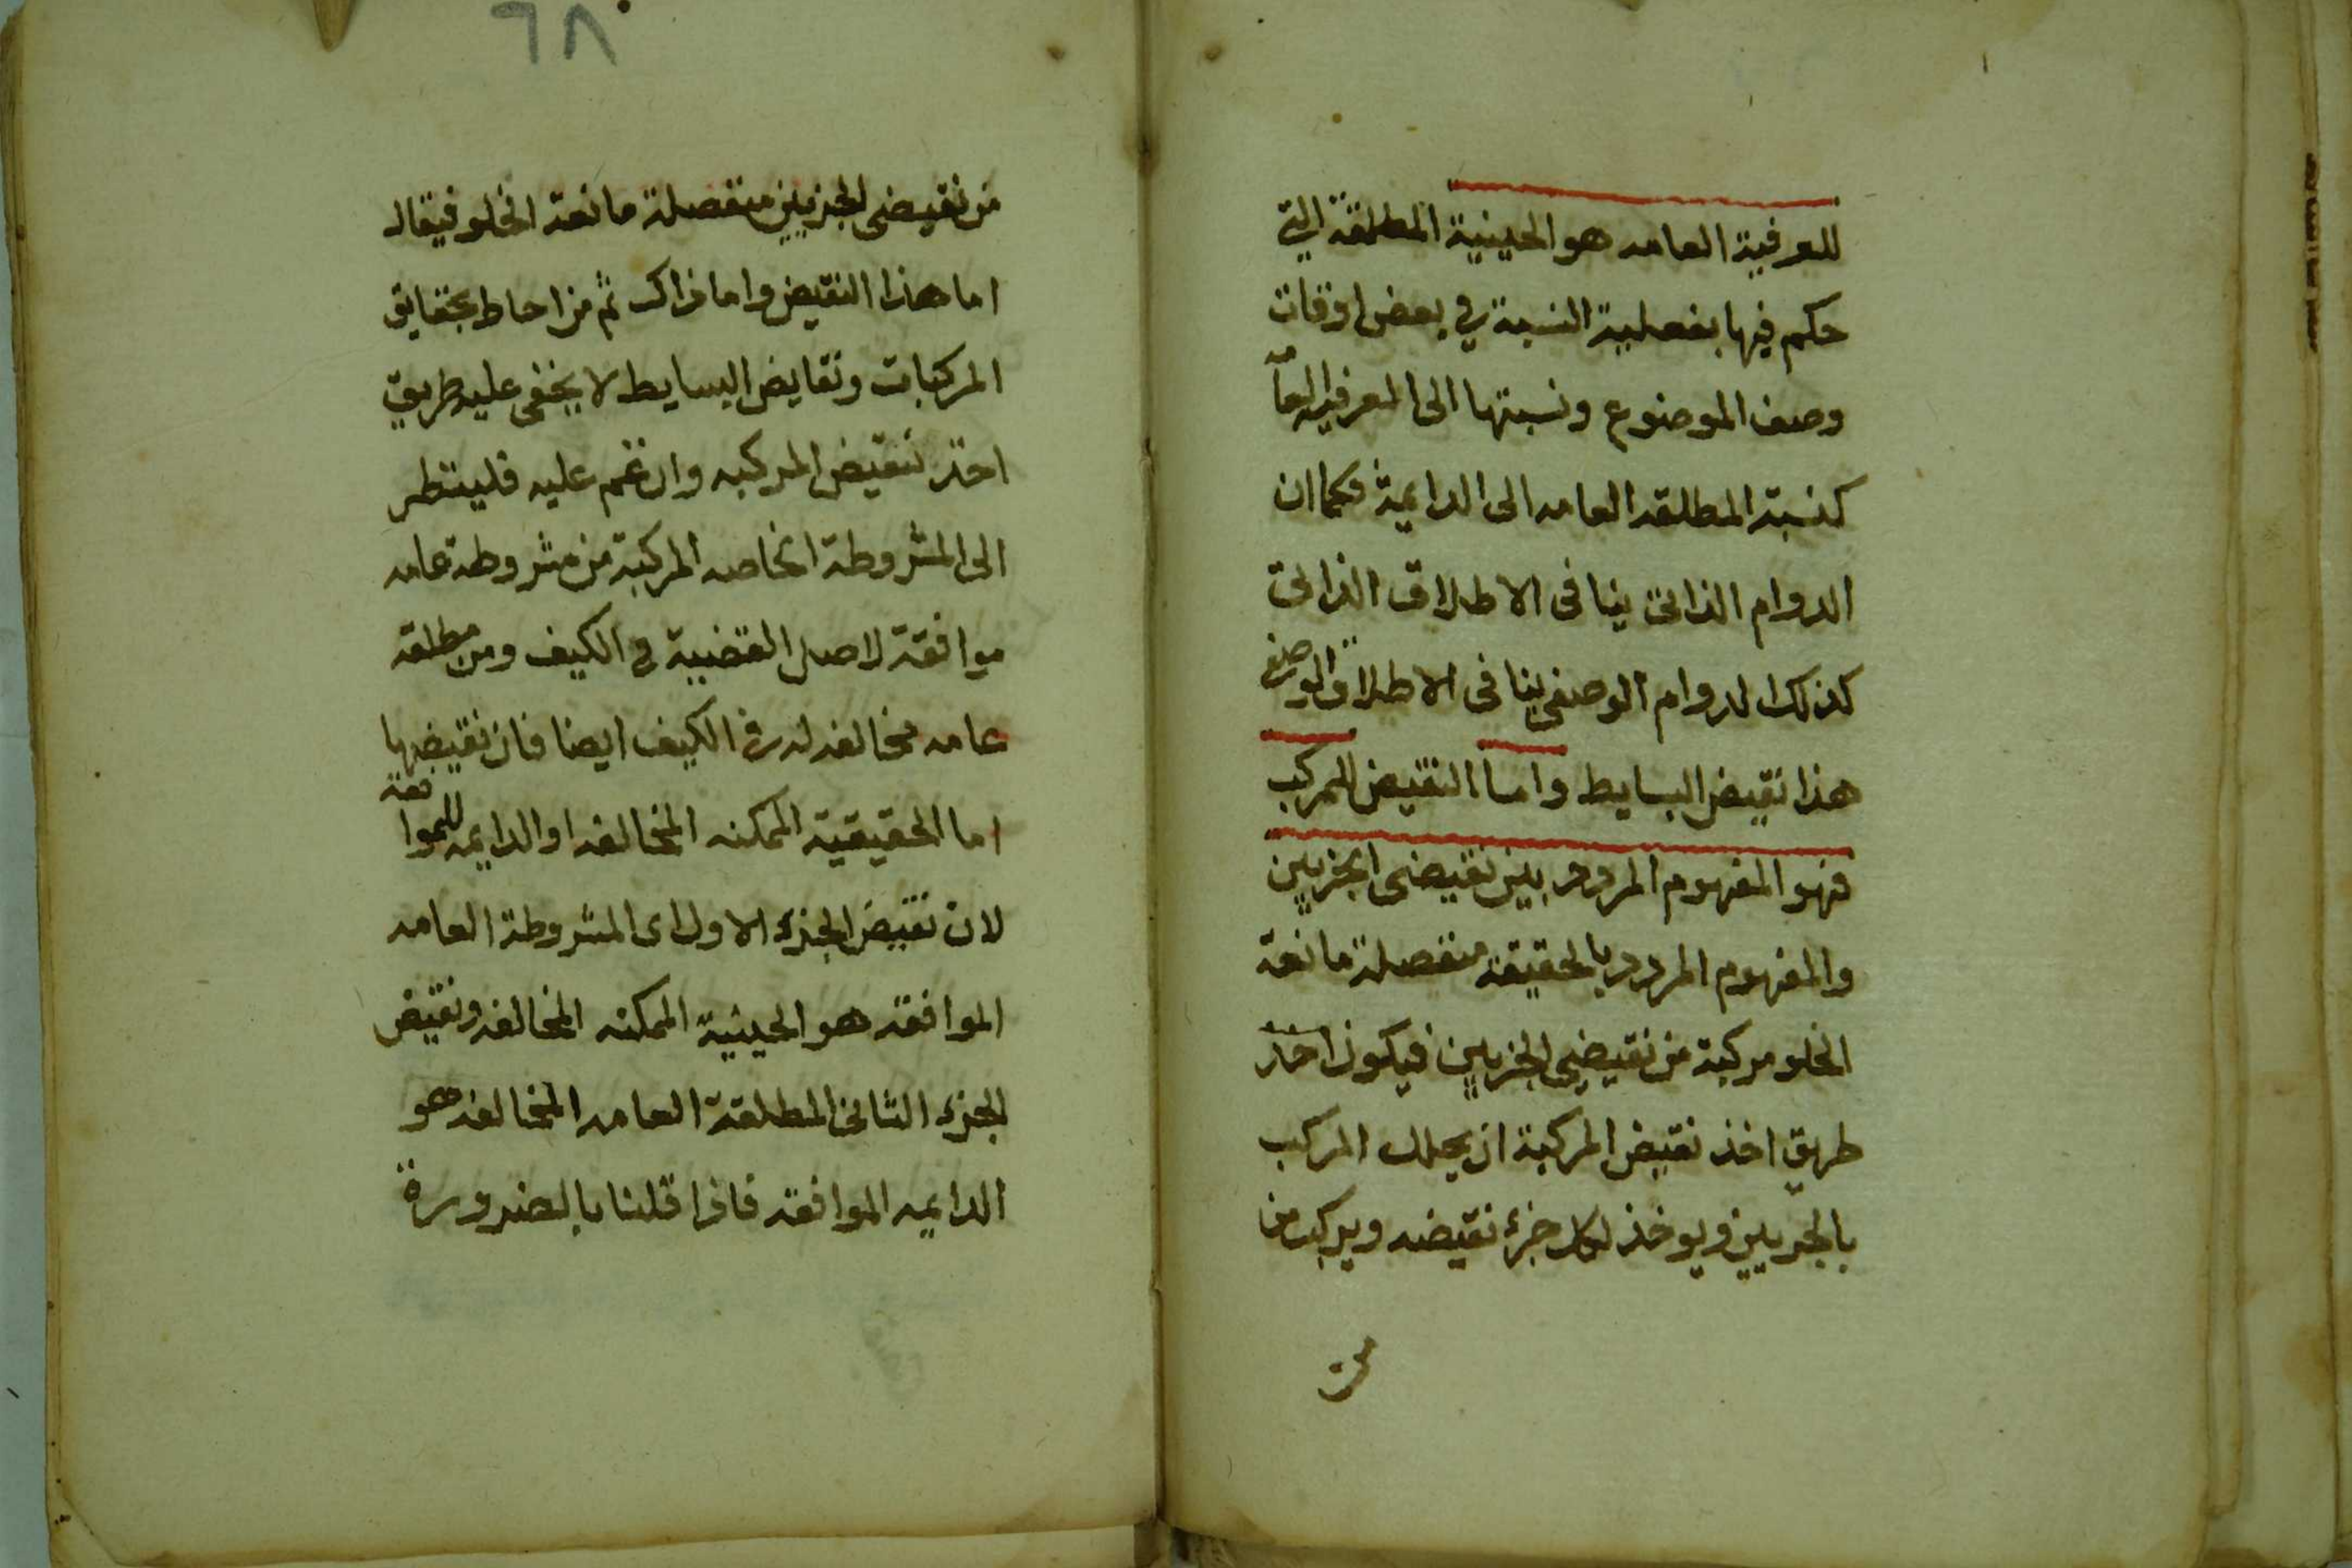 للعرفية العامه هو الحينية المطلقة التي
حكم فيها بفعلية النسبة في بعض اوقات
وصف الموضوع ونسبتها الى العرفيه العامه
كنسبة المطلقه العامه الى الدايمة فكما ان
الدوام الذاتى ينافى الاطلاق الذاتى
كذلك الدوام الوصفى ينافى الاطلاق الوصفي
هذا نقيض البسايط واما النقيض للمركب
فهو المفهوم المردد بين نقيضى الجزيين
والمفهوم المردد بالحقيقه منفصلة مانعة
الخلو مركبة من نقيضي الجزيين فيكون اخذ
طريق اخذ نقيض المركبة ان يحلل المركب
بالجزيين ويوخذ لكل جزء نقيضه ويركب من
من
٦٨
من نقيضى الجزيين منفصلة مانعة الخلو فيقال
اما هذا النقيض واما ذاك ثم من احاط بحقايق
المركبات ونقايض البسايط لا يخفى عليه طريق
اخذ نقيض المركبه وان غم عليه فلينظر
الى المشروطة الخاصه المركبة من مشروطة عامه
موافقة لاصل القضية في الكيف ومن مطلقه
عامه مخالفه له في الكيف ايضا فان نقيضها
اما الحقيقية الممكنه المخالفه او الدايمه للموافقه
لان نقيض الجزء الاول اى المشروطة العامه
الموافقه هو الحينية الممكنه المخالفه ونقيض
الجزء الثانى المطلقة العامه المخالفه هو
الدايمه الموافقه فاذا قلنا بالضرورة